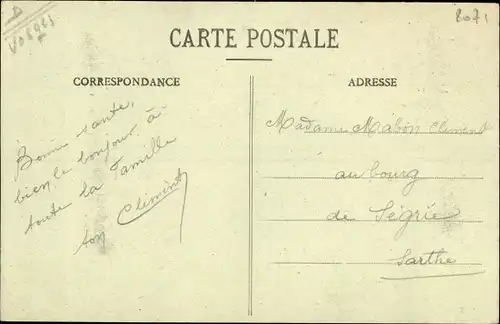 CARTE POSTALE
CORRESPONDANCE
Bonne santé,
bien le bonjour à
toute la famille
ton Clément
ADRESSE
Madame Mabon Clement
au bourg
de Ségrie
Sarthe
8071